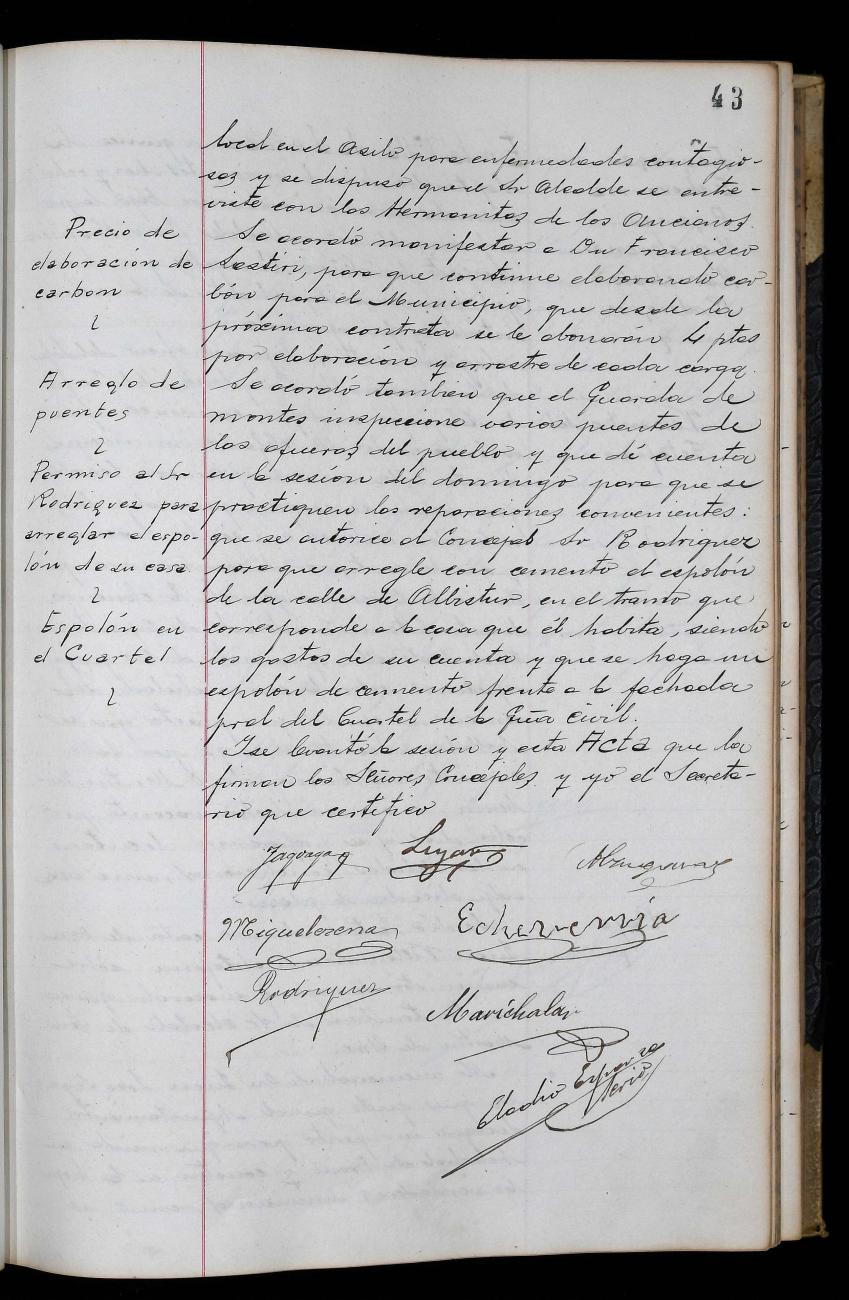 43
local en el Asilo para enfermedades contagio-
sas y se dispuso que el Sr Alcalde se entre-
viste con las Hermanitas de los Ancianos.
Precio de
elaboración de
carbon
Se acordó manifestar a Dn Francisco
Sastiri, para que continue elaborando car-
bón para el Municipio, que desde la
próxima contrata se le abonarán 4 ptas
por elaboración y arrastre de cada carga.
Arreglo de
puentes
Se acordó tambien que el Guarda de
montes inspeccione varios puentes de
las afueras del pueblo y que dé cuenta
en la sesión del domingo para que se
practiquen las reparaciones convenientes:
Permiso al Sr
Rodriguez para
arreglar el espo-
lón de su casa
que se autorice al Concejal Sr Rodriguez
para que arregle con cemento el espolón
de la calle de Albistur, en el tramo que
corresponde a la casa que él habita, siendo
los gastos de su cuenta y que se haga un
Espolón en
el Cuartel
espolón de cemento frente a la fachada
pral del Cuartel de la Gua civil.
Y se levantó la sesión y esta Acta que la
firman los Señores Concejales y yo el Secreta-
rio que certifico
Jaguagaz
Miquelorena
Echeverria
Rodriguez
Marichalar
Eladio Esparza
Serio